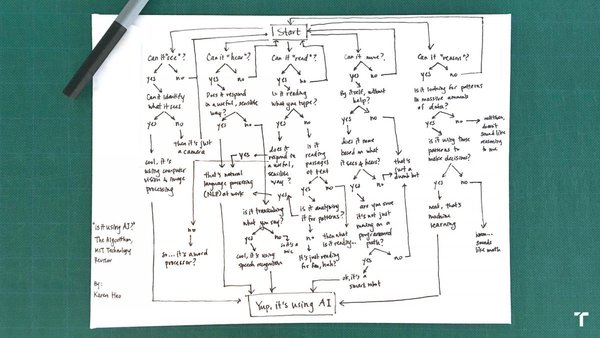 Start
Can it "see"?
yes no
Can it identify
what it sees
yes no
then it's just
a camera
cool, it's
using computer
vision & image
processing
Can it "hear"?
yes no
Does it respond
in a useful, sensible
way?
yes no
yes
that's natural
language processing
(NLP) at work
is it transcribing
what you say?
yes no
so it's a
mic
cool, it's using
speech recognition
no
so... it's a word
processor?
Can it "read"?
yes no
is it reading
what you type?
yes no
does it
respond in
a useful,
sensible
way?
is it
reading
passages
of text
yes no
is it analyzing
it for patterns?
yes
no
it's just reading
for fun, huh?
then what
is it reading...
Can it move?
yes no
By itself, without
help?
yes no
does it move
based on what
it sees & hears?
yes no
that's
just a
dumb bot
are you sure
it's not just
moving on a
pre-programmed
path?
yes no
ok, it's a
smart robot
Can it "reason"?
yes no
Is it looking for patterns
in massive amounts
of data?
yes no
doesn't
sound like
reasoning
to me
is it using those
patterns to
make decisions?
yes no
neat, that's
machine
learning
hmm...
sounds
like math
Yup, it's using AI
"is it using AI?"
The Algorithm,
MIT Technology
Review
By:
Karen Hao